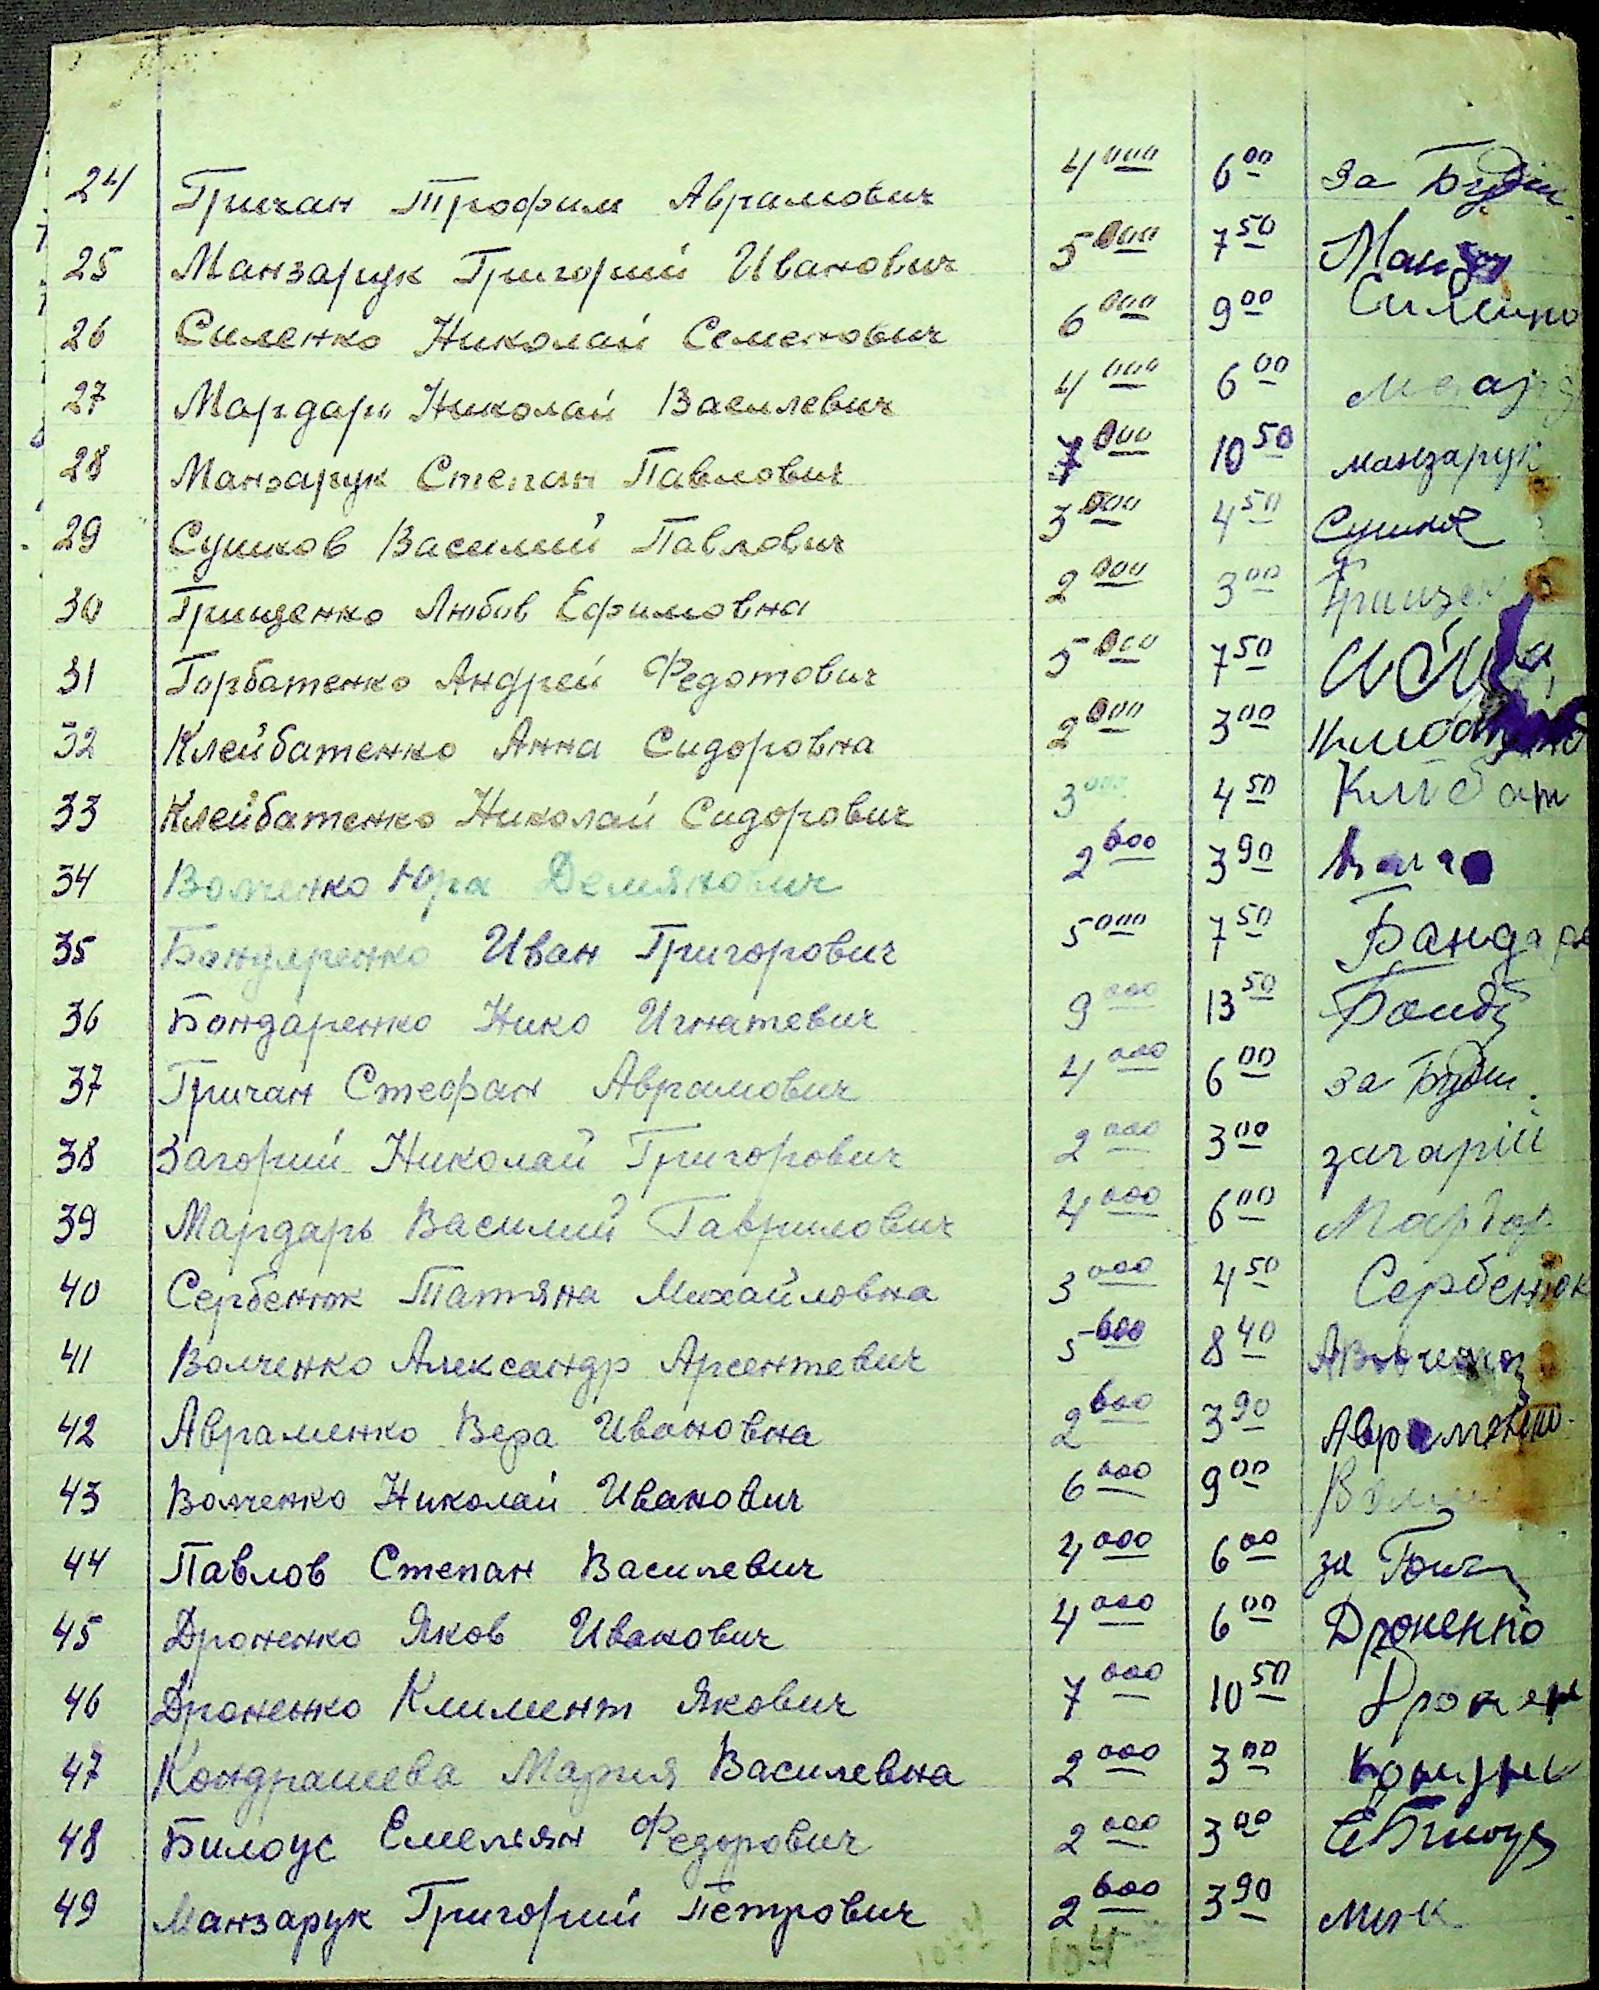 24 Гричан Трофим Аврамович 4 000 6 00 за
25 Манзарук Григорий Иванович 5 000 7 50
26 Силенко Николай Семенович 6 000 9 00
27 Мардарь Николай Василевич 4 000 6 00
28 Манзарук Степан Павлович 7 000 10 50 манзарук
29 Сушков Василий Павлович 3 000 4 50
30 Грищенко Любов Ефимовна 2 000 3 00
31 Горбатенко Андрей Федотович 5 000 7 50
32 Клейбатенко Анна Сидоровна 2 000 3 00
33 Клейбатенко Николай Сидорович 3 000 4 50
34 Волченко Юра Демянович 2 600 3 90
35 Бондаренко Иван Григорович 5 000 7 50
36 Бондаренко Нико Игнатевич 9 000 13 50
37 Гричан Стефан Аврамович 4 000 6 00 за
38 Загорий Николай Григорович 2 000 3 00
39 Мардарь Василий Гаврилович 4 000 6 00
40 Сербенюк Татяна Михайловна 3 000 4 50 Сербенюк
41 Волченко Александр Арсентевич 5 600 8 40
42 Авраменко Вера Ивановна 2 600 3 90
43 Волченко Николай Иванович 6 000 9 00
44 Павлов Степан Василевич 4 000 6 00 за
45 Дроненко Яков Иванович 4 000 6 00 Дроненко
46 Дроненко Климент Якович 7 000 10 50 Дронен
47 Кондрашева Мария Василевна 2 000 3 00
48 Билоус Емельян Федорович 2 000 3 00
49 Манзарук Григорий Петрович 2 600 3 90
104